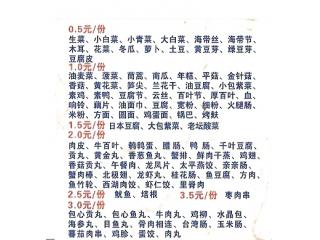 0.5元/份
生菜、小白菜、小青菜、大白菜、海带丝、海带节、
木耳、花菜、冬瓜、萝卜、土豆、黄豆芽、绿豆芽、
豆腐皮
1.0元/份
油麦菜、菠菜、茼蒿、南瓜、年糕、平菇、金针菇、
香菇、黄花菜、笋尖、兰花干、油豆腐、小包紫菜、
素鸡、素鸭、豆腐节、云丝、百叶节、厚百叶、血、
响铃、藕片、油面巾、豆腐、宽粉、细粉、火腿肠、
米粉、方面、圆面、鸡蛋面、锅巴、烤麸
1.5元/份 日本豆腐、大包紫菜、老坛酸菜
2.0元/份
肉皮、牛百叶、鹌鹑蛋、腊肠、鸭肠、千叶豆腐、
贡丸、黄金丸、香菜鱼丸、蟹排、鲜肉千燕、鸡翅、
香菇贡丸、午餐肉、龙凤片、太平燕饺、亲亲肠、
蟹肉棒、北极翅、龙虾丸、桂花肠、鱼豆腐、方肉、
鱼竹轮、西湖肉饺、虾仁饺、里脊肉
2.5元/份 鱿鱼、培根 3.5元/份 枣肉串
3.0元/份
包心贡丸、包心鱼丸、牛肉丸、鸡柳、水晶包、
海参丸、目鱼丸、骨肉相连、台湾肠、玉米肠、
蕃茄肉串、鸡胗、蛋饺、肉丸